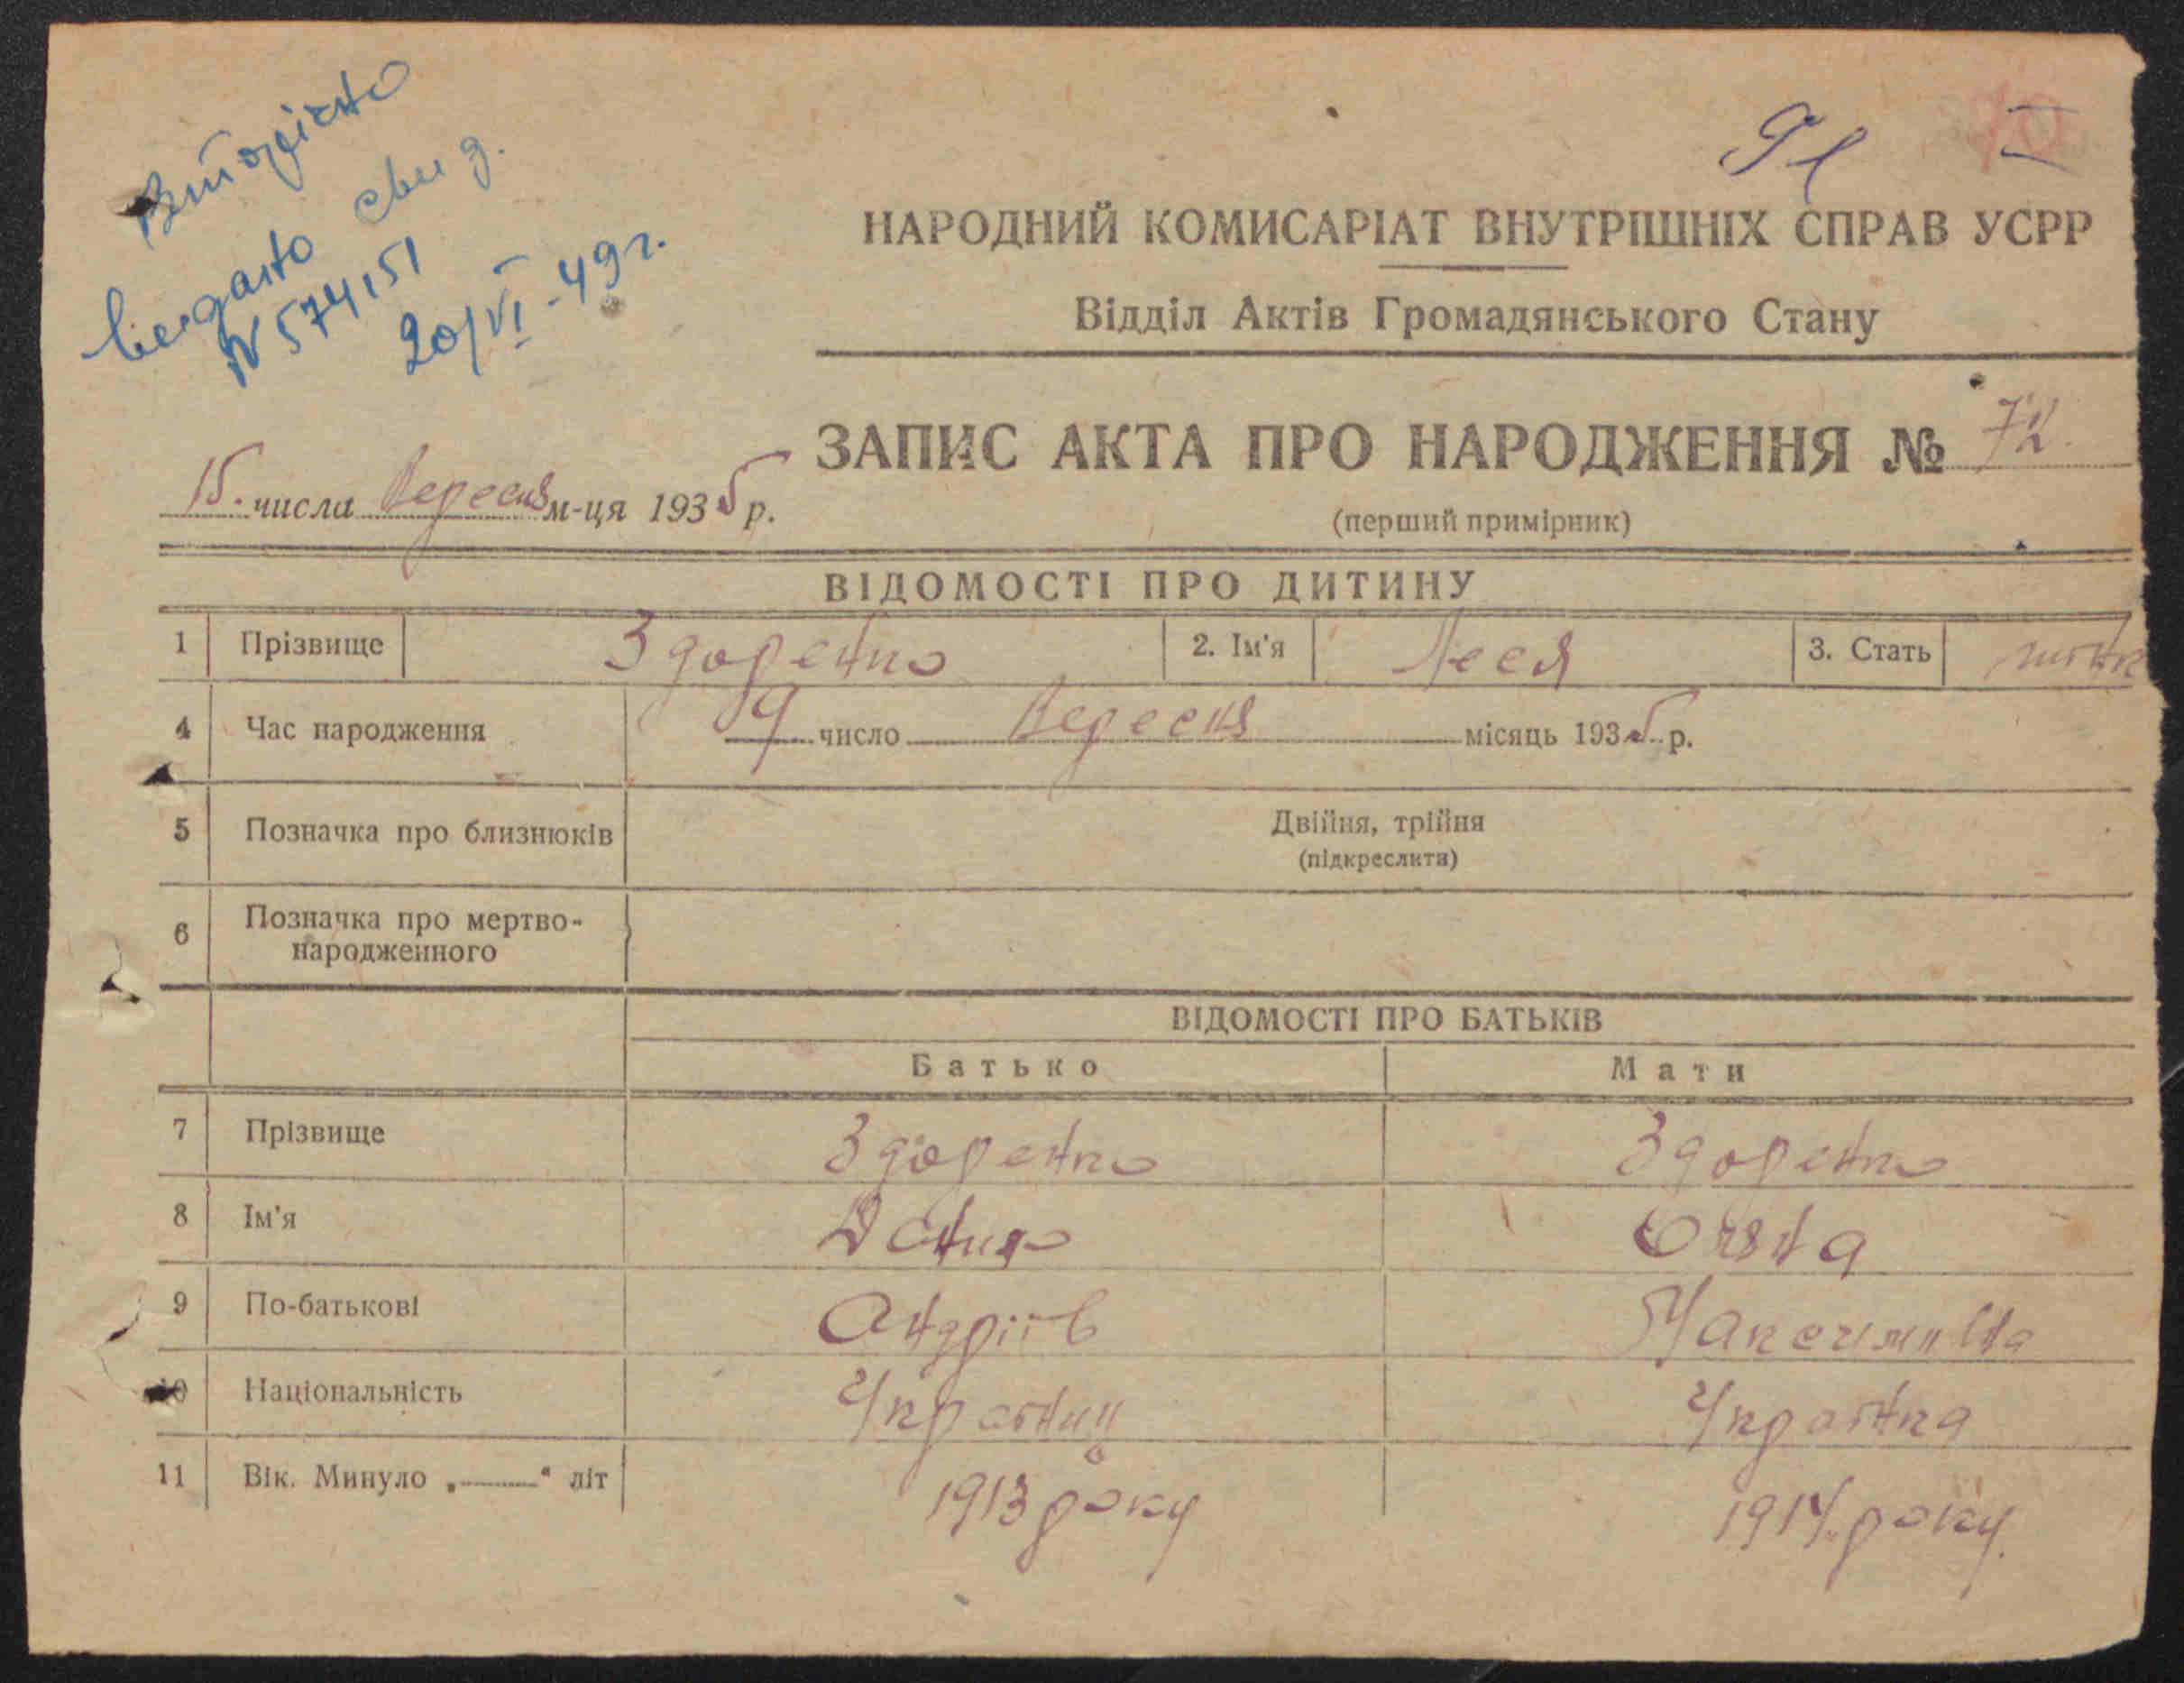 Вторічно
видано свид.
N 574151
20/VI-49 г.
91
70
НАРОДНИЙ КОМИСАРІАТ ВНУТРІШНІХ СПРАВ УСРР
Відділ Актів Громадянського Стану
ЗАПИС АКТА ПРО НАРОДЖЕННЯ № 72.
15. числа Вересня м-ця 1935 р.
(перший примірник)
ВІДОМОСТІ ПРО ДИТИНУ
1 Прізвище Здоренко 2. Ім'я Леся 3. Стать жінк
4 Час народження 9 число Вересня місяць 1935 р.
5 Позначка про близнюків Двійня, трійня
(підкреслити)
6 Позначка про мертво-
народженного
ВІДОМОСТІ ПРО БАТЬКІВ
Батько Мати
7 Прізвище Здоренко Здоренко
8 Ім'я Данило
9 По-батькові Андріів Максимивна
10 Національність Украінц Украінка
11 Вік. Минуло „ “ літ 1913 року 1914. року.